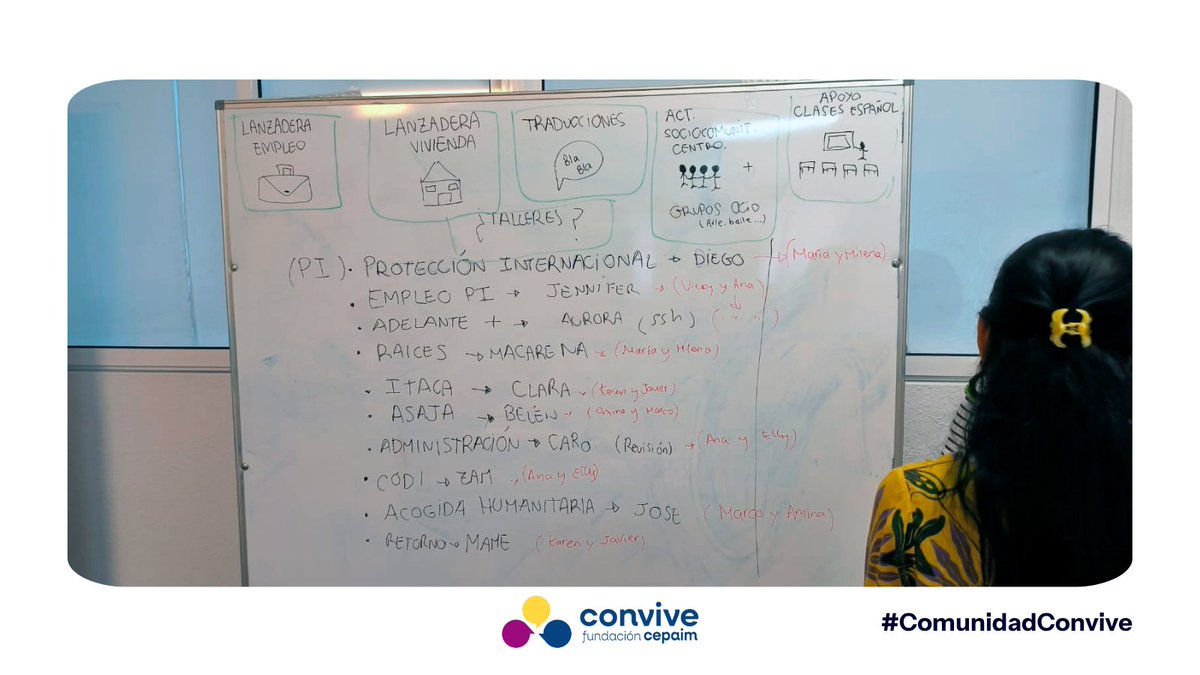 LANZADERA
EMPLEO
LANZADERA
VIVIENDA
TRADUCCIONES
Bla
Bla
ACT.
SOCIOCOMUNIT.
CENTRO.
+
GRUPOS OCIO
(Arte, baile...)
APOYO
CLASES ESPAÑOL
¿TALLERES?
(PI). PROTECCIÓN INTERNACIONAL → DIEGO → (María y Milena)
• EMPLEO PI → JENNIFER → (Vicky y Ana)
• ADELANTE + → AURORA (SSH) (.. ..)
• RAICES → MACARENA → (María y Milena)
• ITACA → CLARA → (Karen y Javier)
• ASAJA → BELÉN → (Amina y Marco)
• ADMINISTRACIÓN → CARO (Revisión) → (Ana y Elly)
• CODI → ZAM → (Ana y Elly)
• ACOGIDA HUMANITARIA → JOSE (Marco y Amina)
• RETORNO → MAME (Karen y Javier)
convive
fundación cepaim
#ComunidadConvive